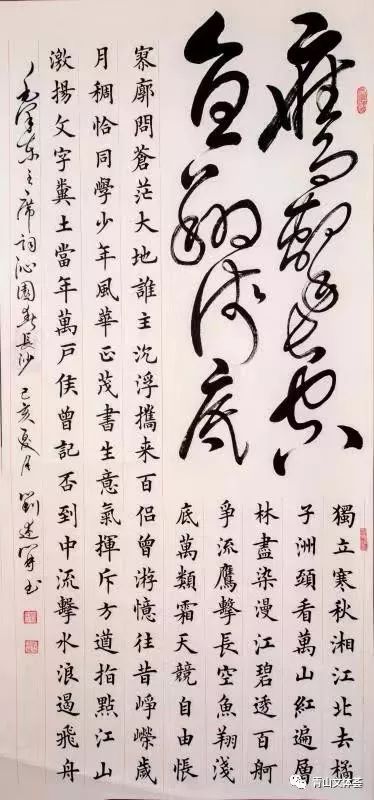 鷹擊長空
魚翔淺底
獨立寒秋湘江北去橘
子洲頭看萬山紅遍層
林盡染漫江碧透百舸
爭流鷹擊長空魚翔淺
底萬類霜天競自由悵
寥廓問蒼茫大地誰主沉浮攜来百侣曾游憶往昔崢嶸歲
月稠恰同學少年風華正茂書生意氣揮斥方遒指點江山
激揚文字糞土當年萬戶侯曾記否到中流擊水浪遏飛舟
毛澤東主席詞沁園春長沙 己亥夏月 劉書
青山文体荟